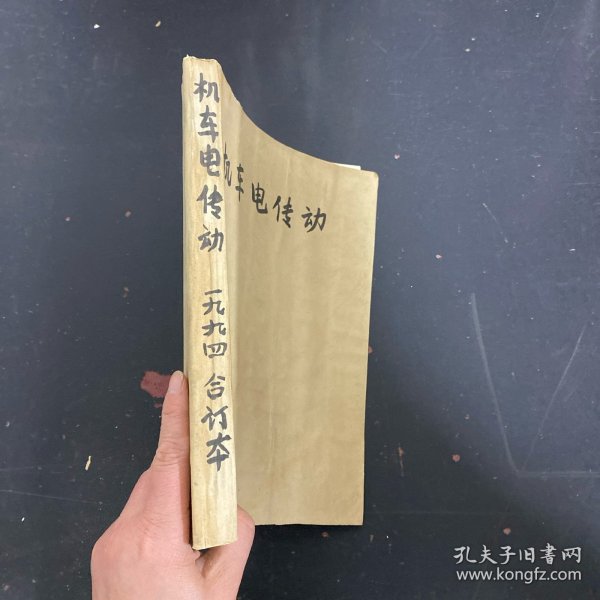 机车电传动 一九九四 合订本
机车电传动
孔夫子旧書网
www.kongfz.com